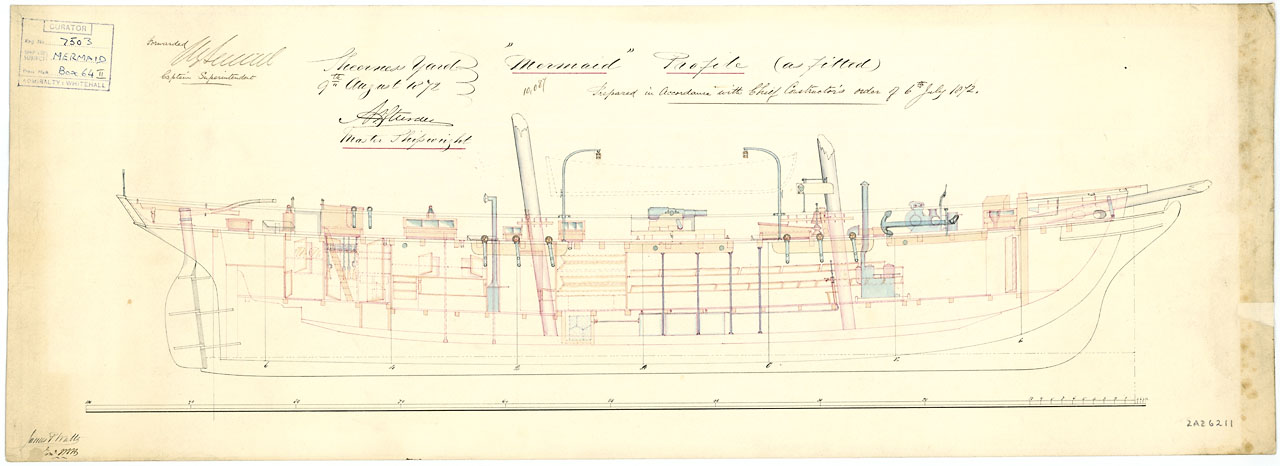 CURATOR
Reg. No. 7503
SUBJECT MERMAID
Box 64 II
ADMIRALTY WHITEHALL
Forwarded
Captain Superintendent
Sheerness Yard
9th August 1872
Master Shipwright
"Mermaid" Profile (as fitted)
Prepared in Accordance with Chief Constructor's order of 6th July 1872.
ZAZ6211